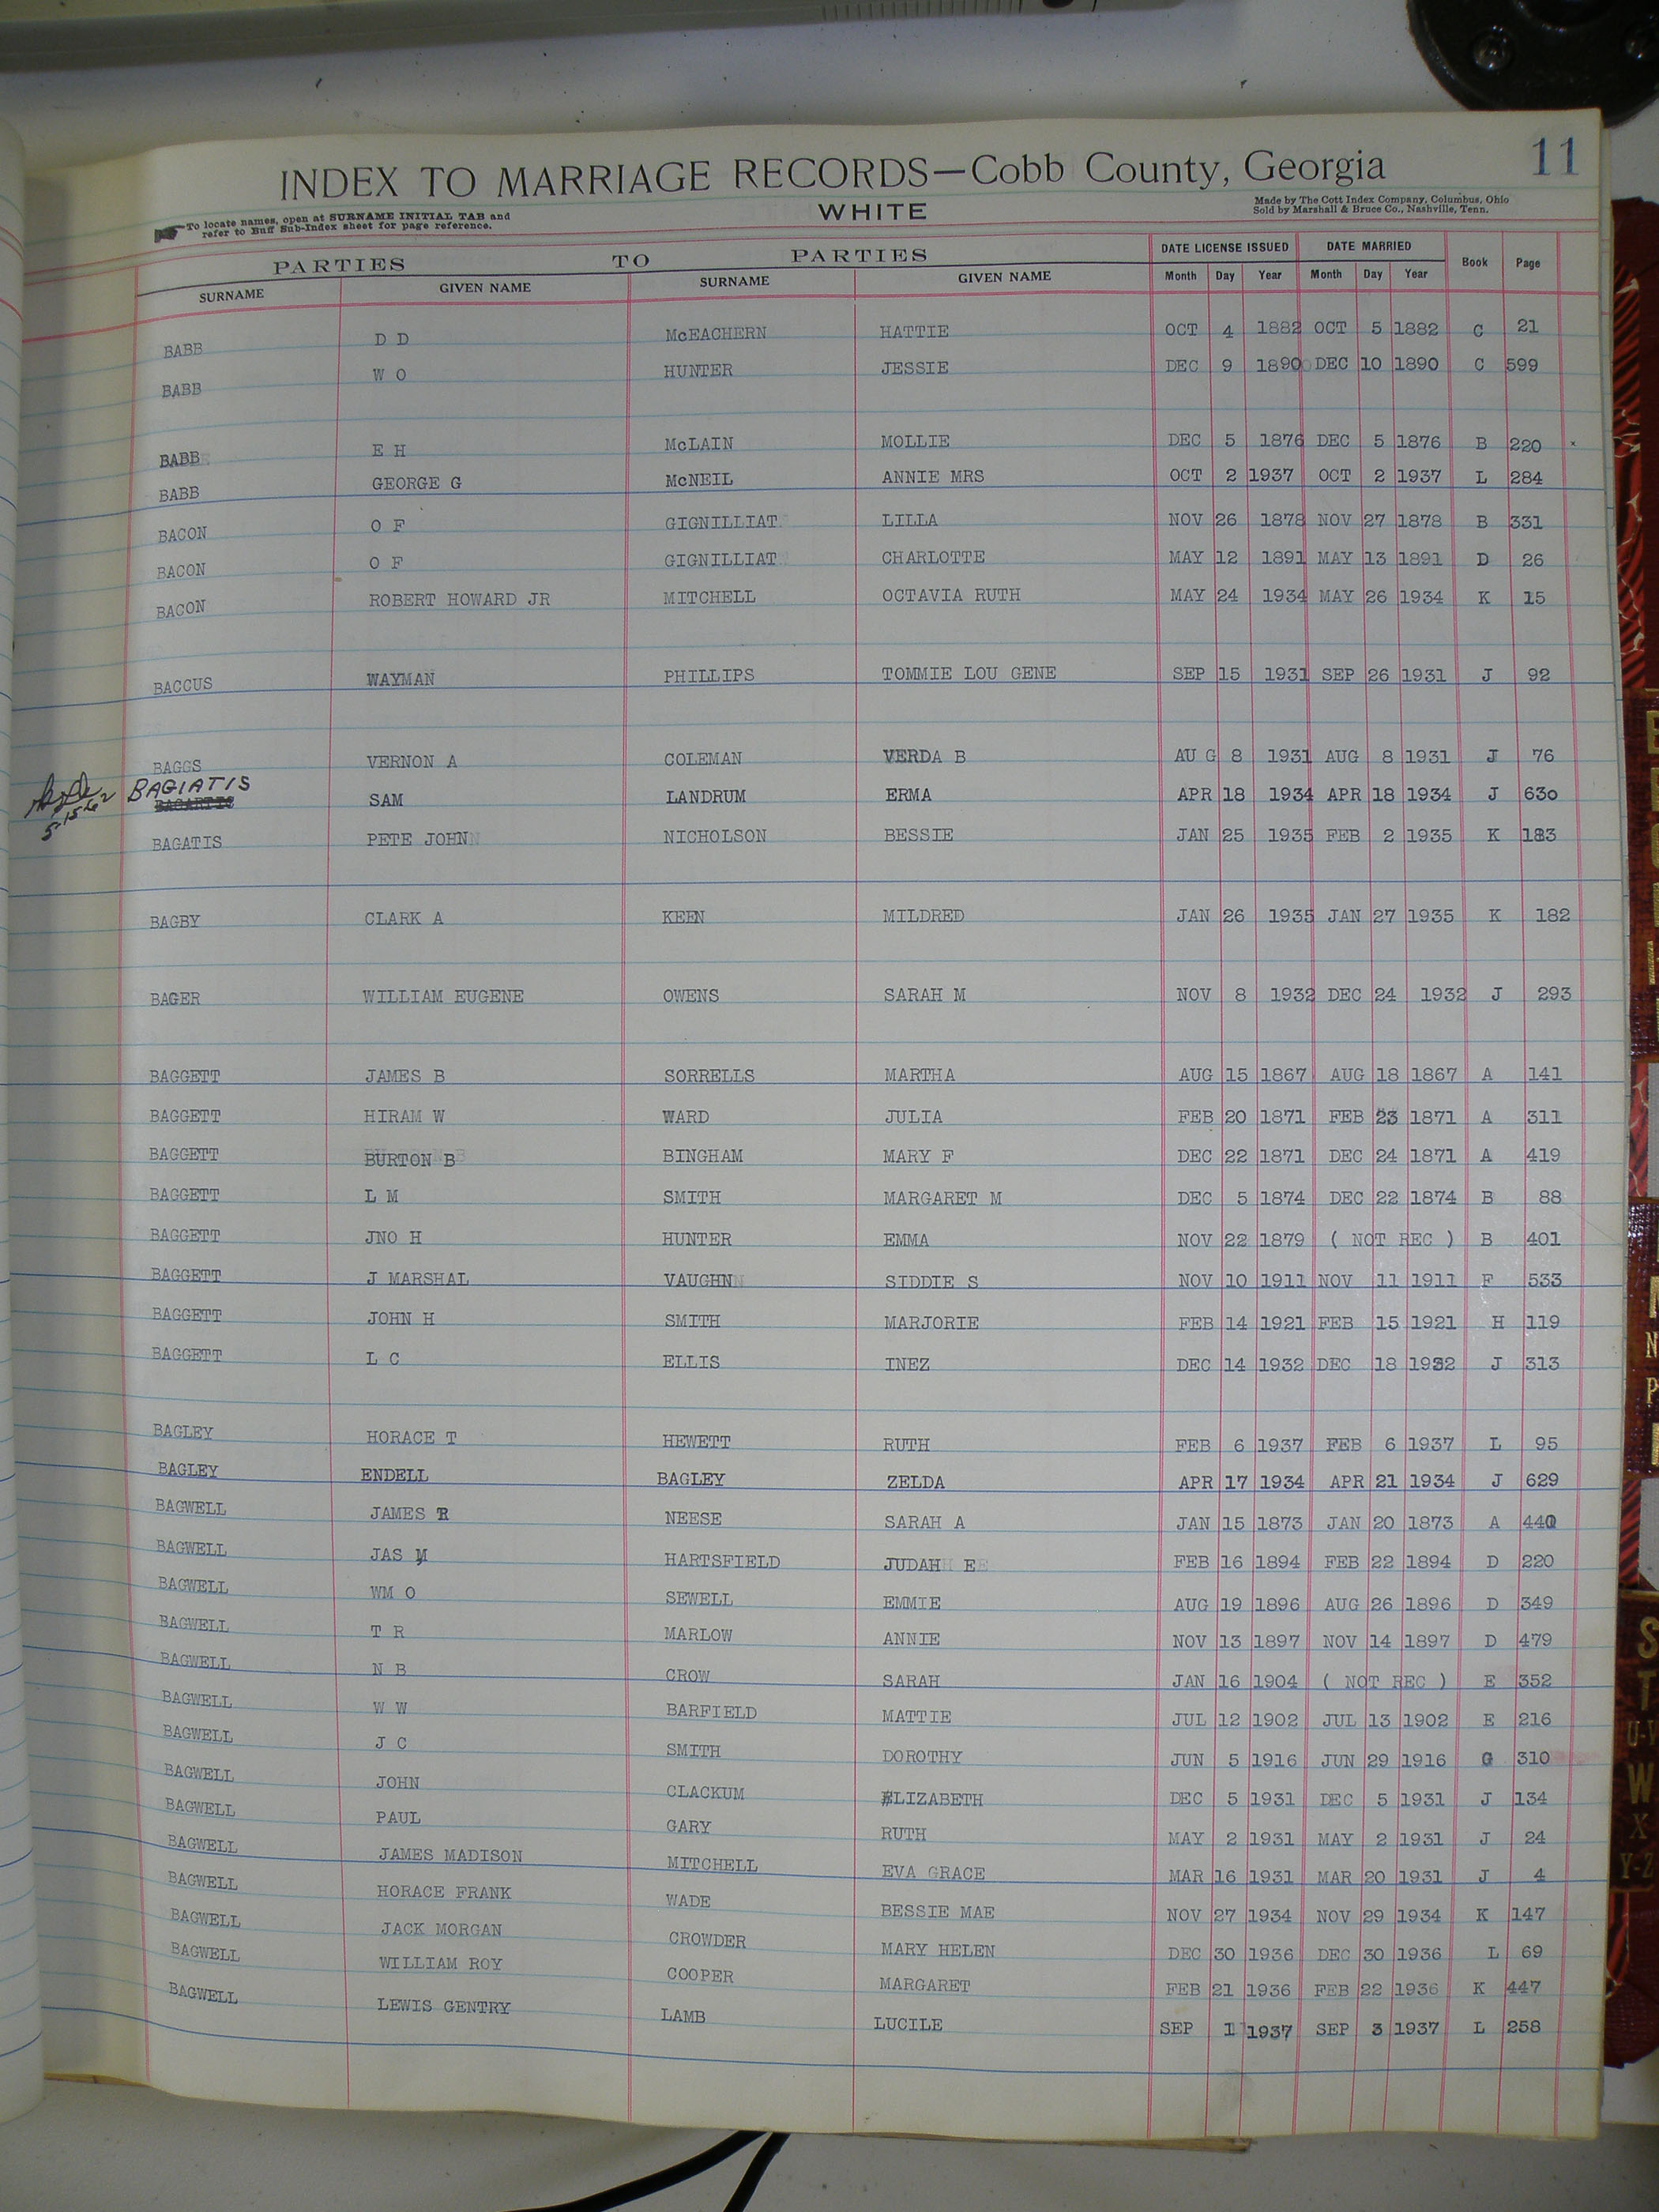 11
INDEX TO MARRIAGE RECORDS—Cobb County, Georgia
WHITE
To locate names, open at SURNAME INITIAL TAB and
refer to Buff Sub-Index sheet for page reference.
Made by The Cott Index Company, Columbus, Ohio
Sold by Marshall & Bruce Co., Nashville, Tenn.
PARTIES TO PARTIES DATE LICENSE ISSUED DATE MARRIED Book Page
SURNAME GIVEN NAME SURNAME GIVEN NAME Month Day Year Month Day Year
BABB D D McEACHERN HATTIE OCT 4 1882 OCT 5 1882 C 21
BABB W O HUNTER JESSIE DEC 9 1890 DEC 10 1890 C 599
BABB E H McLAIN MOLLIE DEC 5 1876 DEC 5 1876 B 220
BABB GEORGE G McNEIL ANNIE MRS OCT 2 1937 OCT 2 1937 L 284
BACON O F GIGNILLIAT LILLA NOV 26 1878 NOV 27 1878 B 331
BACON O F GIGNILLIAT CHARLOTTE MAY 12 1891 MAY 13 1891 D 26
BACON ROBERT HOWARD JR MITCHELL OCTAVIA RUTH MAY 24 1934 MAY 26 1934 K 15
BACCUS WAYMAN PHILLIPS TOMMIE LOU GENE SEP 15 1931 SEP 26 1931 J 92
BAGGS VERNON A COLEMAN VERDA B AU G 8 1931 AUG 8 1931 J 76
BAGIATIS SAM LANDRUM ERMA APR 18 1934 APR 18 1934 J 630
5-15-62
BAGATIS PETE JOHN NICHOLSON BESSIE JAN 25 1935 FEB 2 1935 K 183
BAGBY CLARK A KEEN MILDRED JAN 26 1935 JAN 27 1935 K 182
BAGER WILLIAM EUGENE OWENS SARAH M NOV 8 1932 DEC 24 1932 J 293
BAGGETT JAMES B SORRELLS MARTHA AUG 15 1867 AUG 18 1867 A 141
BAGGETT HIRAM W WARD JULIA FEB 20 1871 FEB 23 1871 A 311
BAGGETT BURTON B BINGHAM MARY F DEC 22 1871 DEC 24 1871 A 419
BAGGETT L M SMITH MARGARET M DEC 5 1874 DEC 22 1874 B 88
BAGGETT JNO H HUNTER EMMA NOV 22 1879 ( NOT REC ) B 401
BAGGETT J MARSHAL VAUGHN SIDDIE S NOV 10 1911 NOV 11 1911 F 533
BAGGETT JOHN H SMITH MARJORIE FEB 14 1921 FEB 15 1921 H 119
BAGGETT L C ELLIS INEZ DEC 14 1932 DEC 18 1932 J 313
BAGLEY HORACE T HEWETT RUTH FEB 6 1937 FEB 6 1937 L 95
BAGLEY ENDELL BAGLEY ZELDA APR 17 1934 APR 21 1934 J 629
BAGWELL JAMES R NEESE SARAH A JAN 15 1873 JAN 20 1873 A 440
BAGWELL JAS M HARTSFIELD JUDAH E FEB 16 1894 FEB 22 1894 D 220
BAGWELL WM O SEWELL EMMIE AUG 19 1896 AUG 26 1896 D 349
BAGWELL T R MARLOW ANNIE NOV 13 1897 NOV 14 1897 D 479
BAGWELL N B CROW SARAH JAN 16 1904 ( NOT REC ) E 352
BAGWELL W W BARFIELD MATTIE JUL 12 1902 JUL 13 1902 E 216
BAGWELL J C SMITH DOROTHY JUN 5 1916 JUN 29 1916 G 310
BAGWELL JOHN CLACKUM ELIZABETH DEC 5 1931 DEC 5 1931 J 134
BAGWELL PAUL GARY RUTH MAY 2 1931 MAY 2 1931 J 24
BAGWELL JAMES MADISON MITCHELL EVA GRACE MAR 16 1931 MAR 20 1931 J 4
BAGWELL HORACE FRANK WADE BESSIE MAE NOV 27 1934 NOV 29 1934 K 147
BAGWELL JACK MORGAN CROWDER MARY HELEN DEC 30 1936 DEC 30 1936 L 69
BAGWELL WILLIAM ROY COOPER MARGARET FEB 21 1936 FEB 22 1936 K 447
BAGWELL LEWIS GENTRY LAMB LUCILE SEP 1 1937 SEP 3 1937 L 258